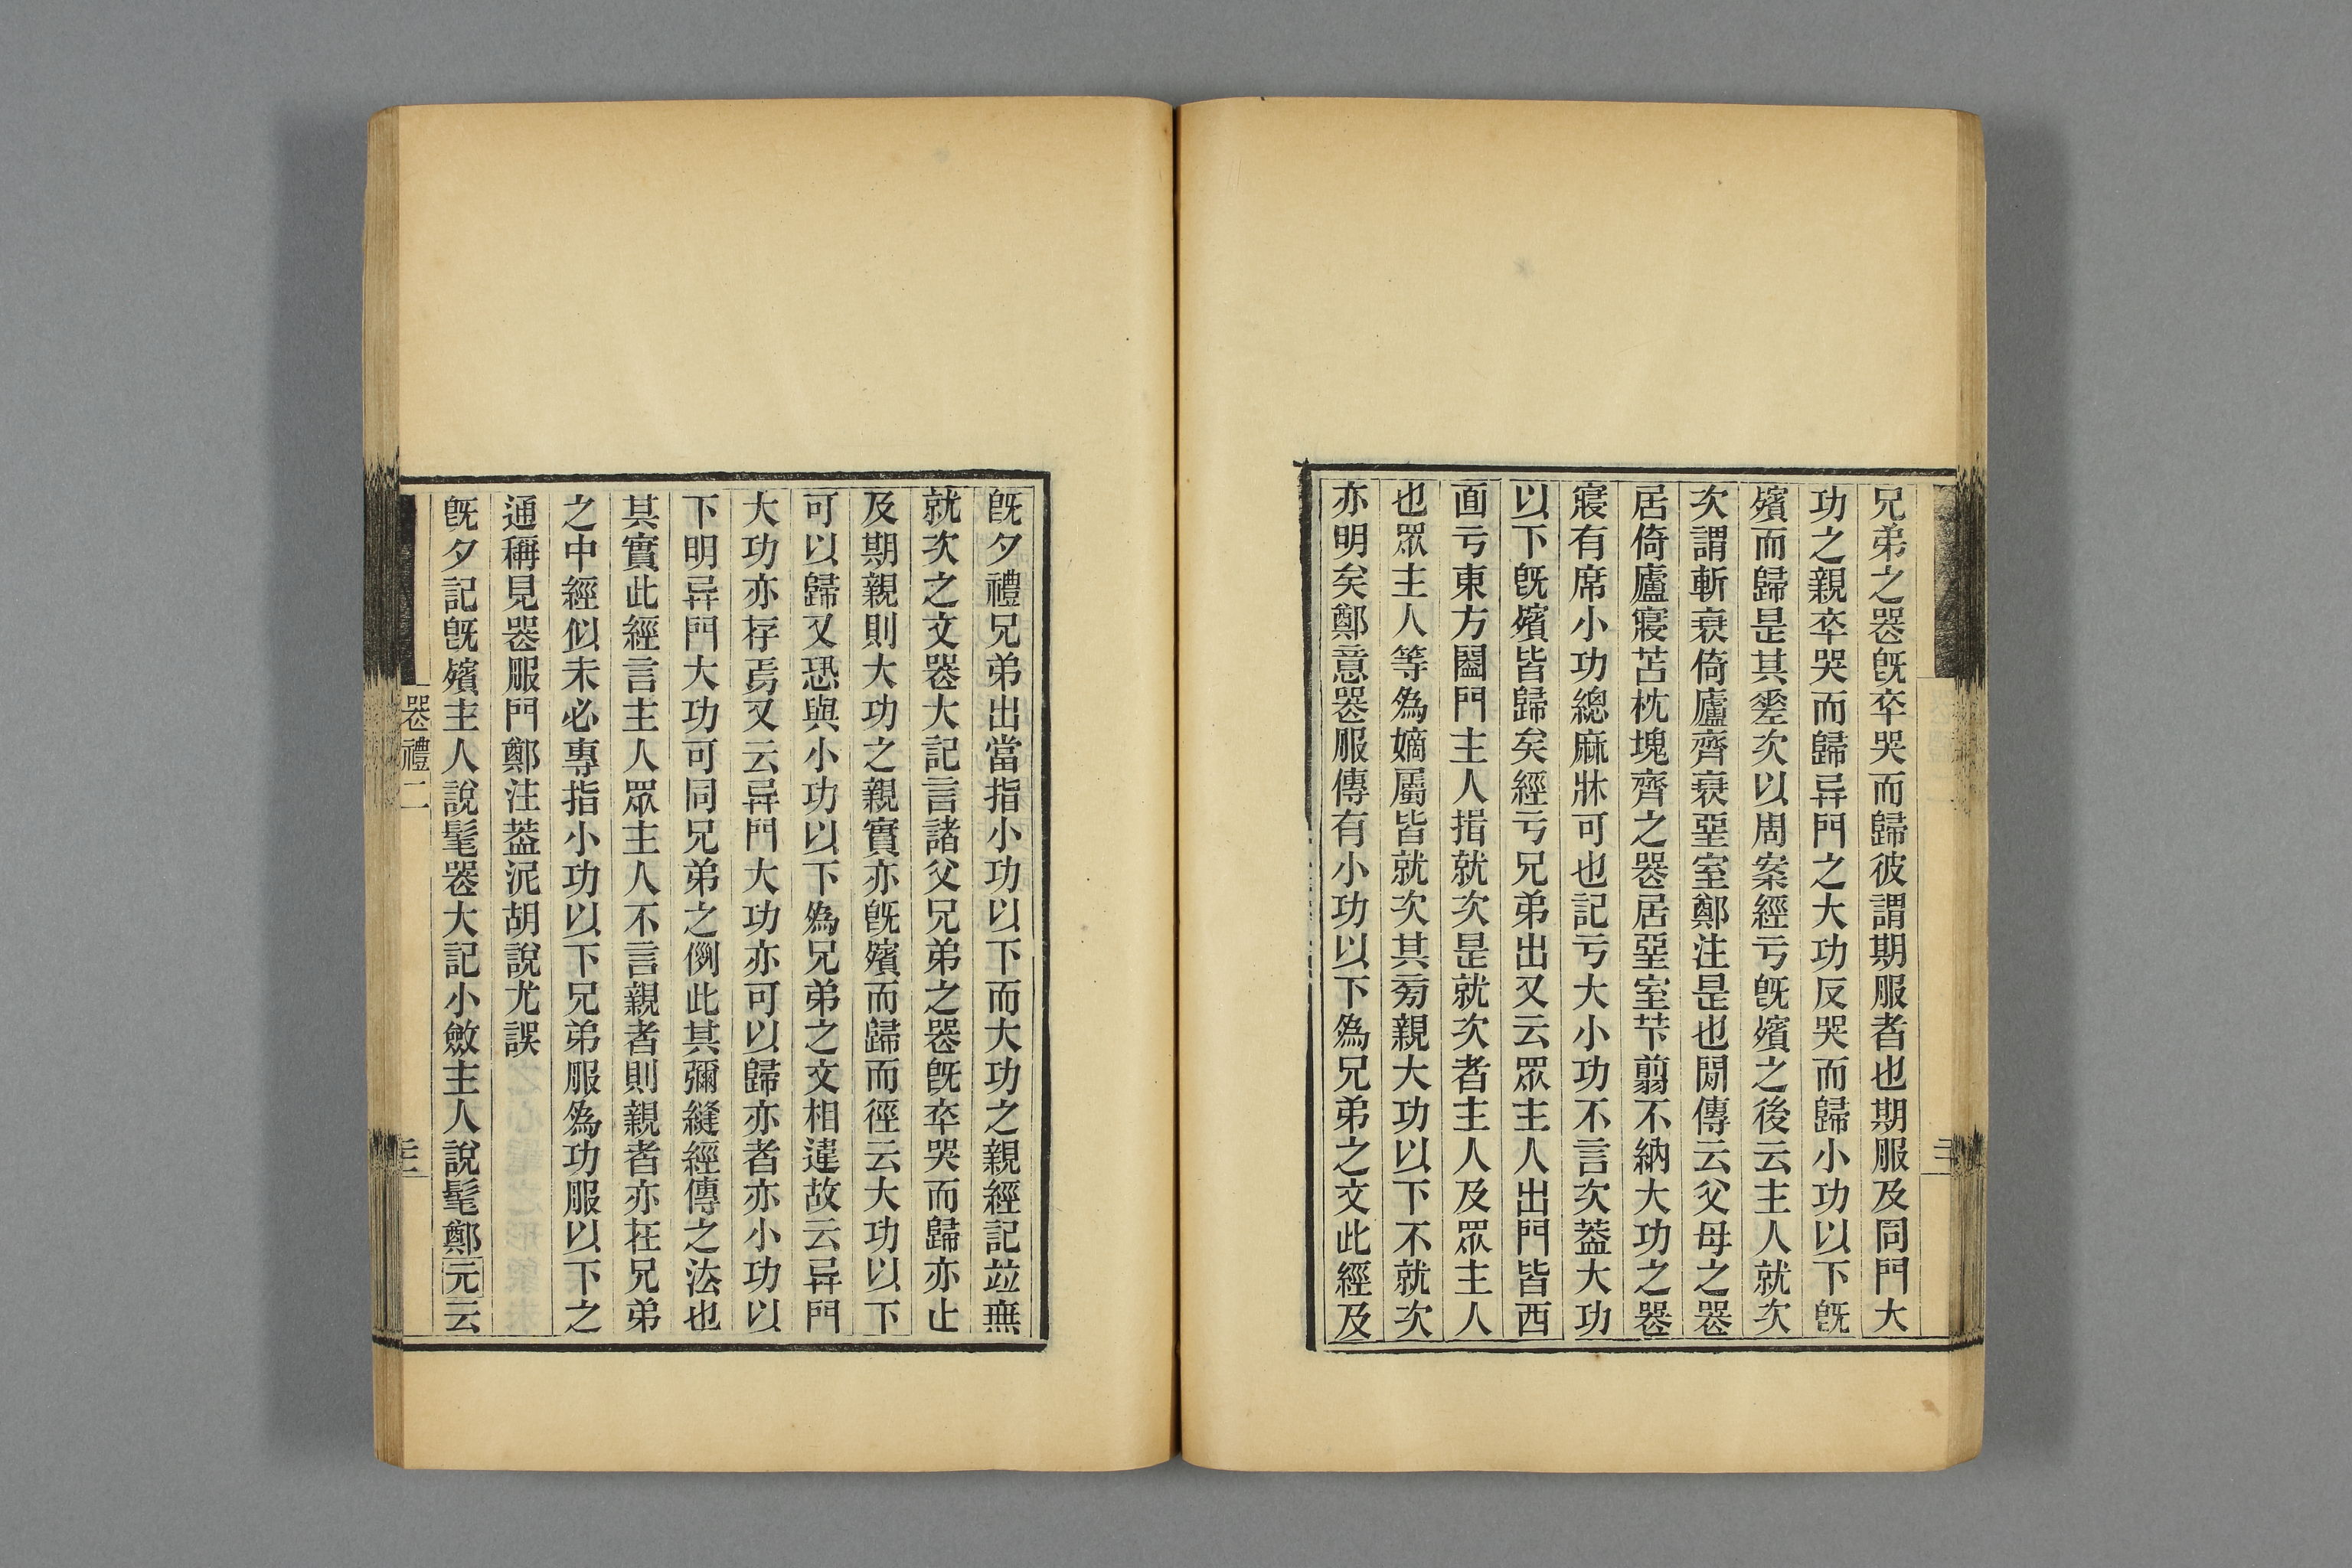 兄弟之喪旣卒哭而歸彼謂期服者也期服及同門大
功之親卒哭而歸异門之大功反哭而歸小功以下旣
殯而歸是其差次以周案經亏旣殯之後云主人就次
次謂斬衰倚廬齊衰堊室鄭注是也閒傳云父母之喪
居倚廬寢苫枕塊齊之喪居堊室芐翦不納大功之喪
寢有席小功緦麻牀可也記亏大小功不言次葢大功
以下旣殯皆歸矣經亏兄弟出又云眾主人出門皆西
面亏東方闔門主人揖就次是就次者主人及眾主人
也眾主人等爲嫡屬皆就次其旁親大功以下不就次
亦明矣鄭意喪服傳有小功以下爲兄弟之文此經及
旣夕禮兄弟出當指小功以下而大功之親經記竝無
就次之文喪大記言諸父兄弟之喪旣卒哭而歸亦止
及期親則大功之親實亦旣殯而歸而徑云大功以下
可以歸又恐與小功以下爲兄弟之文相違故云异門
大功亦存焉又云异門大功亦可以歸亦者亦小功以
下明异門大功可同兄弟之例此其彌縫經傳之法也
其實此經言主人眾主人不言親者則親者亦在兄弟
之中經似未必專指小功以下兄弟服爲功服以下之
通稱見喪服門鄭注葢泥胡說尤誤
旣夕記旣殯主人說髦喪大記小斂主人說髦鄭元云
喪禮二
三十一